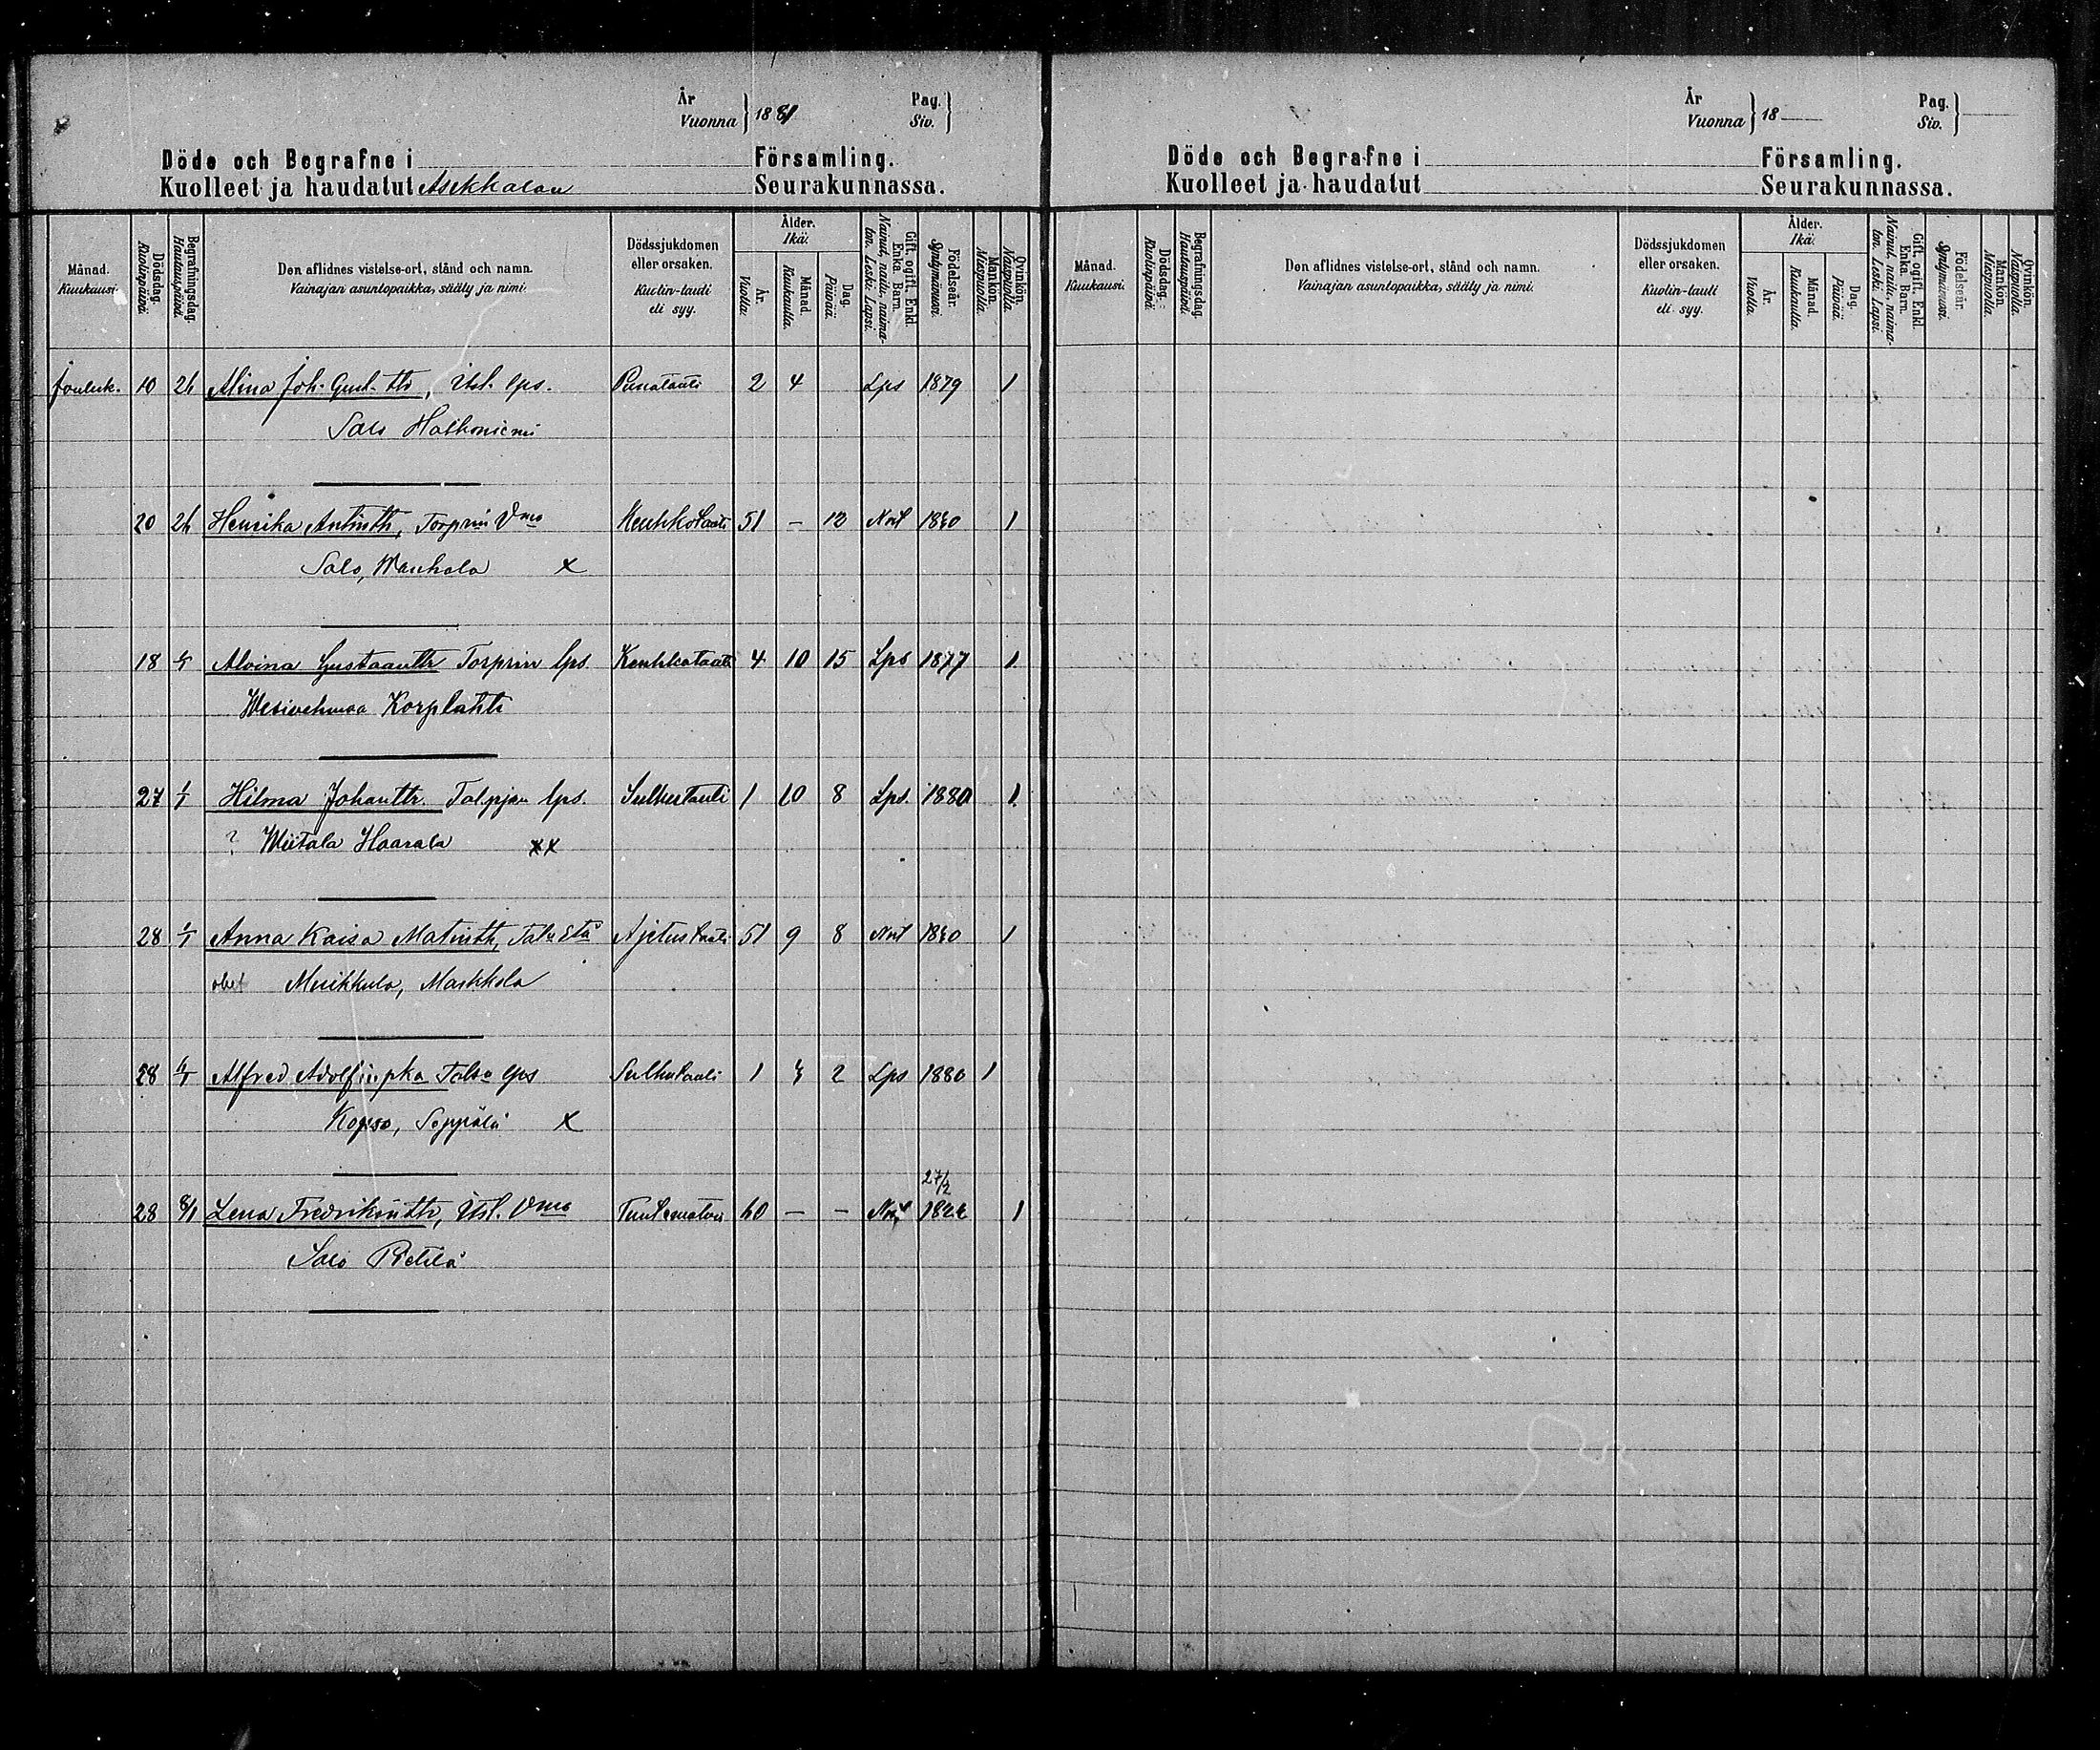 År
Vuonna } 1881
Pag.
Siv. }
Döde och Begrafne i Församling.
Kuolleet ja haudatut Asikkalan Seurakunnassa.
Månad. Kuukausi.
Dödsdag. Kuolinpäivä.
Begrafningsdag. Hautauspäivä.
Den aflidnes vistelse-ort, stånd och namn.
Vainajan asuntopaikka, sääty ja nimi.
Dödssjukdomen eller orsaken.
Kuolin-tauti eli syy.
Ålder. Ikä.
År. Vuotta.
Månad. Kuukautta.
Dag. Päivää.
Gift, ogift. Enkl. Enka. Barn.
Nainut, naitu, naimaton. Leski. Lapsi.
Födelseår. Syntymävuosi.
Mankön. Miespuolta.
Qvinkön. Naispuolta.
Jouluk. 10 24 Alina Joh. Gust. ttr, Itsl. lps. Punatauti 2 4 Lps 1879 1
Salo Halkoniemi
20 24 Henrika Antintr, Torprin Vmo Keuhkotauti 51 – 12 Nait 1830 1
Salo, Wanhala x
18 Alvina Gustaanttr Torprin lps. Keuhkotauti 4 10 15 Lps 1877 1
Wesivehmaa Korplahti
27 1/1 Hilma Johanttr. Talpjan lps. Sulkutauti 1 10 8 Lps. 1880 1
? Wiitala Haarala xx
28 1/1 Anna Kaisa Matintr, Ajetustauti 51 9 8 Nait 1830 1
Muikkula, Markkola
28 Alfred Adolfinpka Talon lps Sulkutauti 1 3 2 Lps 1880 1
Kopso, Seppälä x
27/2
28 8/1 Lena Fredrikintr, Itsl. Vmo Tuntematoin 60 – – Nait 1822 1
Salo Pietilä
År
Vuonna } 18
Pag.
Siv. }
Döde och Begrafne i Församling.
Kuolleet ja haudatut Seurakunnassa.
Månad. Kuukausi.
Dödsdag. Kuolinpäivä.
Begrafningsdag. Hautauspäivä.
Den aflidnes vistelse-ort, stånd och namn.
Vainajan asuntopaikka, sääty ja nimi.
Dödssjukdomen eller orsaken.
Kuolin-tauti eli syy.
Ålder. Ikä.
År. Vuotta.
Månad. Kuukautta.
Dag. Päivää.
Gift, ogift. Enkl. Enka. Barn.
Nainut, naitu, naimaton. Leski. Lapsi.
Födelseår. Syntymävuosi.
Mankön. Miespuolta.
Qvinkön. Naispuolta.